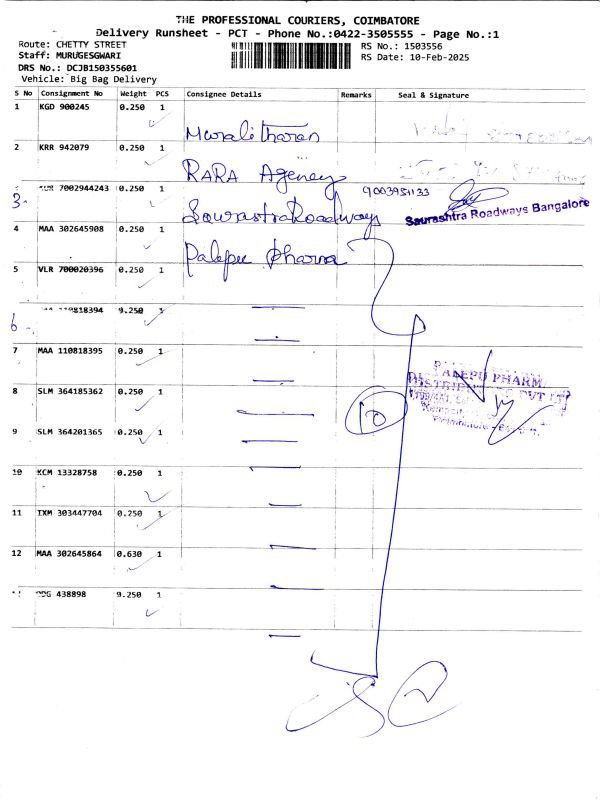 THE PROFESSIONAL COURIERS, COIMBATORE
Delivery Runsheet - PCT - Phone No.:0422-3505555 - Page No.:1
Route: CHETTY STREET
Staff: MURUGESGWARI
DRS No.: DCJB150355601
Vehicle: Big Bag Delivery
RS No.: 1503556
RS Date: 10-Feb-2025
S No Consignment No Weight PCS Consignee Details Remarks Seal & Signature
1 KGD 900245 0.250 1
Muralitharan
2 KRR 942079 0.250 1
RARA Agency
3 7002944243 0.250 1 9003951133
Sourastra Roadways Saurashtra Roadways Bangalore
4 MAA 302645908 0.250 1
Palepu pharma
5 VLR 700020396 0.250 1
6 110818394 0.250 1
7 MAA 110818395 0.250 1
PALEPU PHARMA
8 SLM 364185362 0.250 1
PVT LT
10
9 SLM 364201365 0.250 1
10 KCM 13328758 0.250 1
11 IXM 303447704 0.250 1
12 MAA 302645864 0.630 1
438898 0.250 1